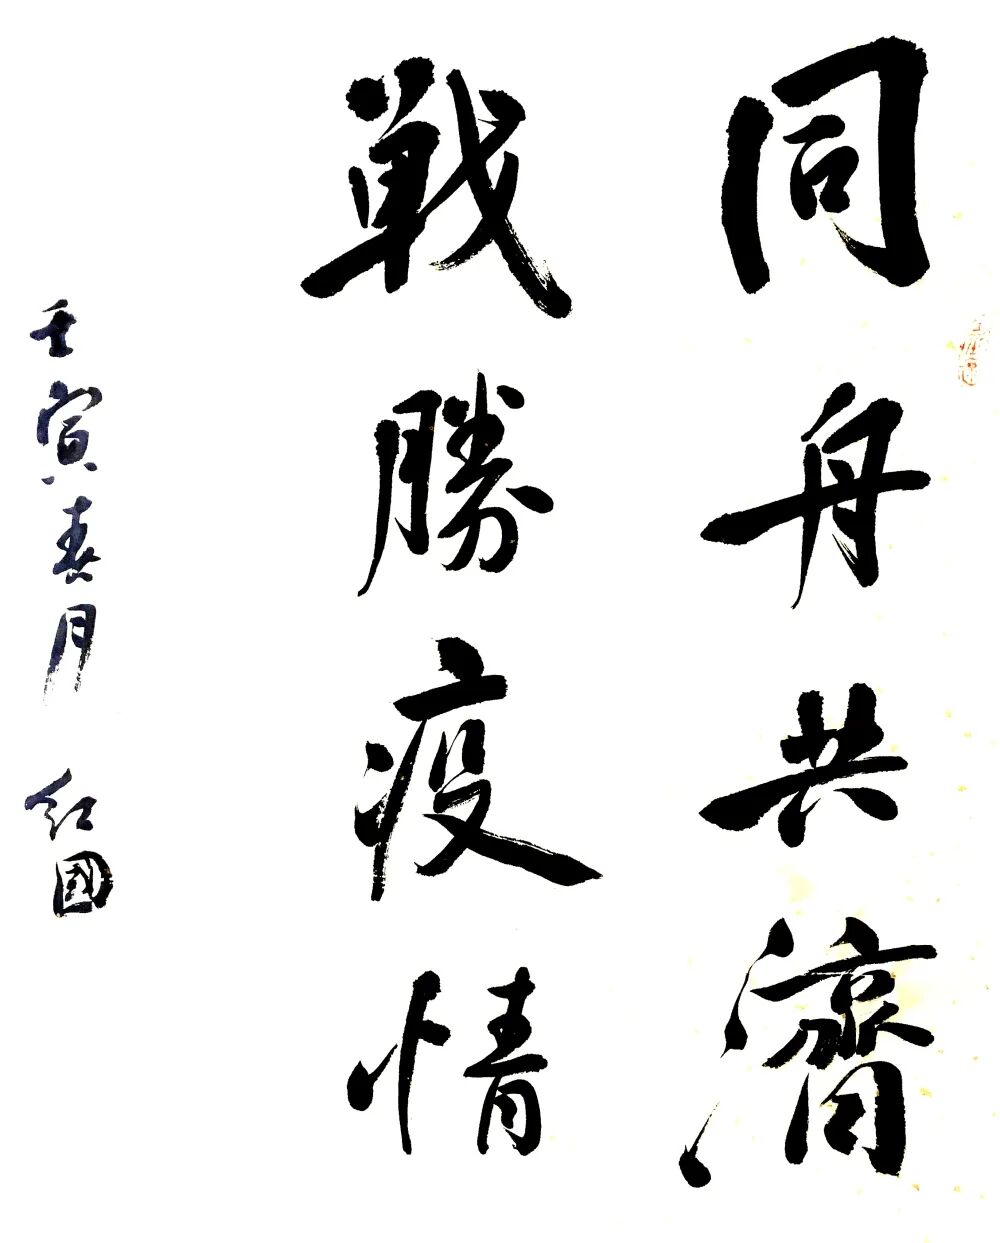 同舟共濟
戰勝疫情
壬寅春月 紅國